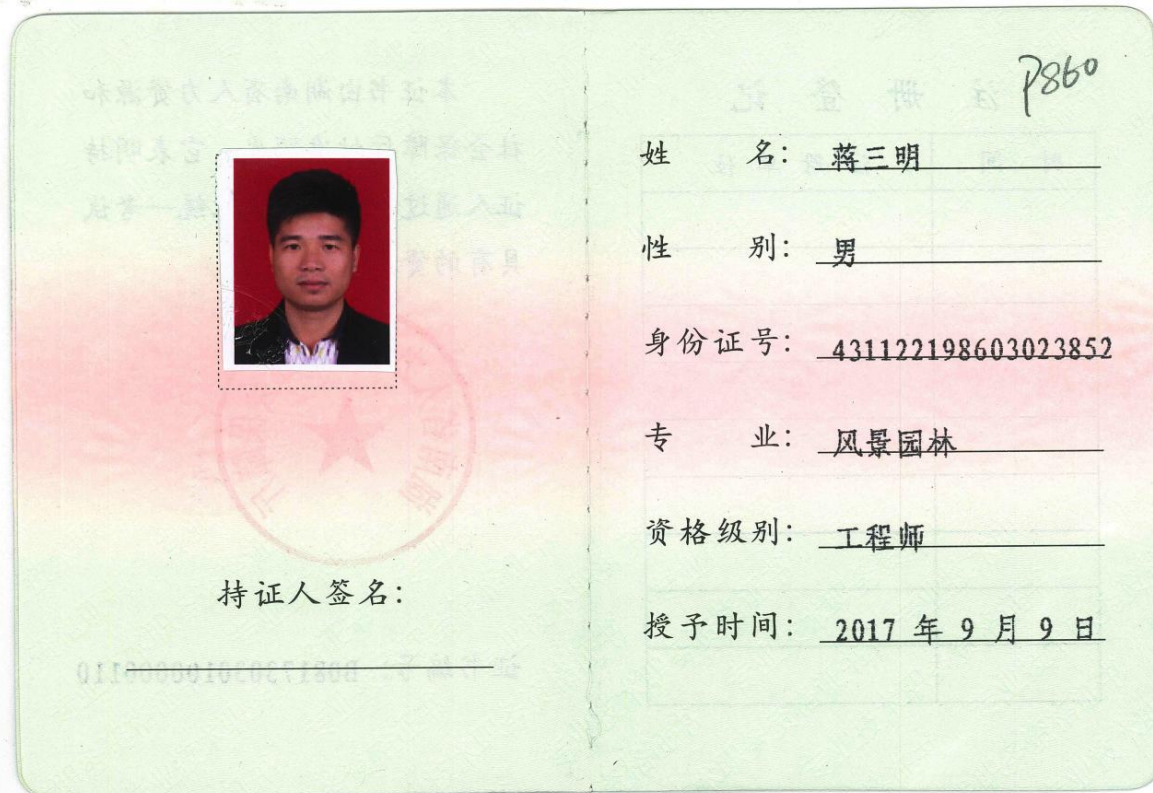 P860
姓名：蒋三明
性别：男
身份证号：431122198603023852
专业：风景园林
资格级别：工程师
授予时间：2017 年 9 月 9 日
持证人签名：